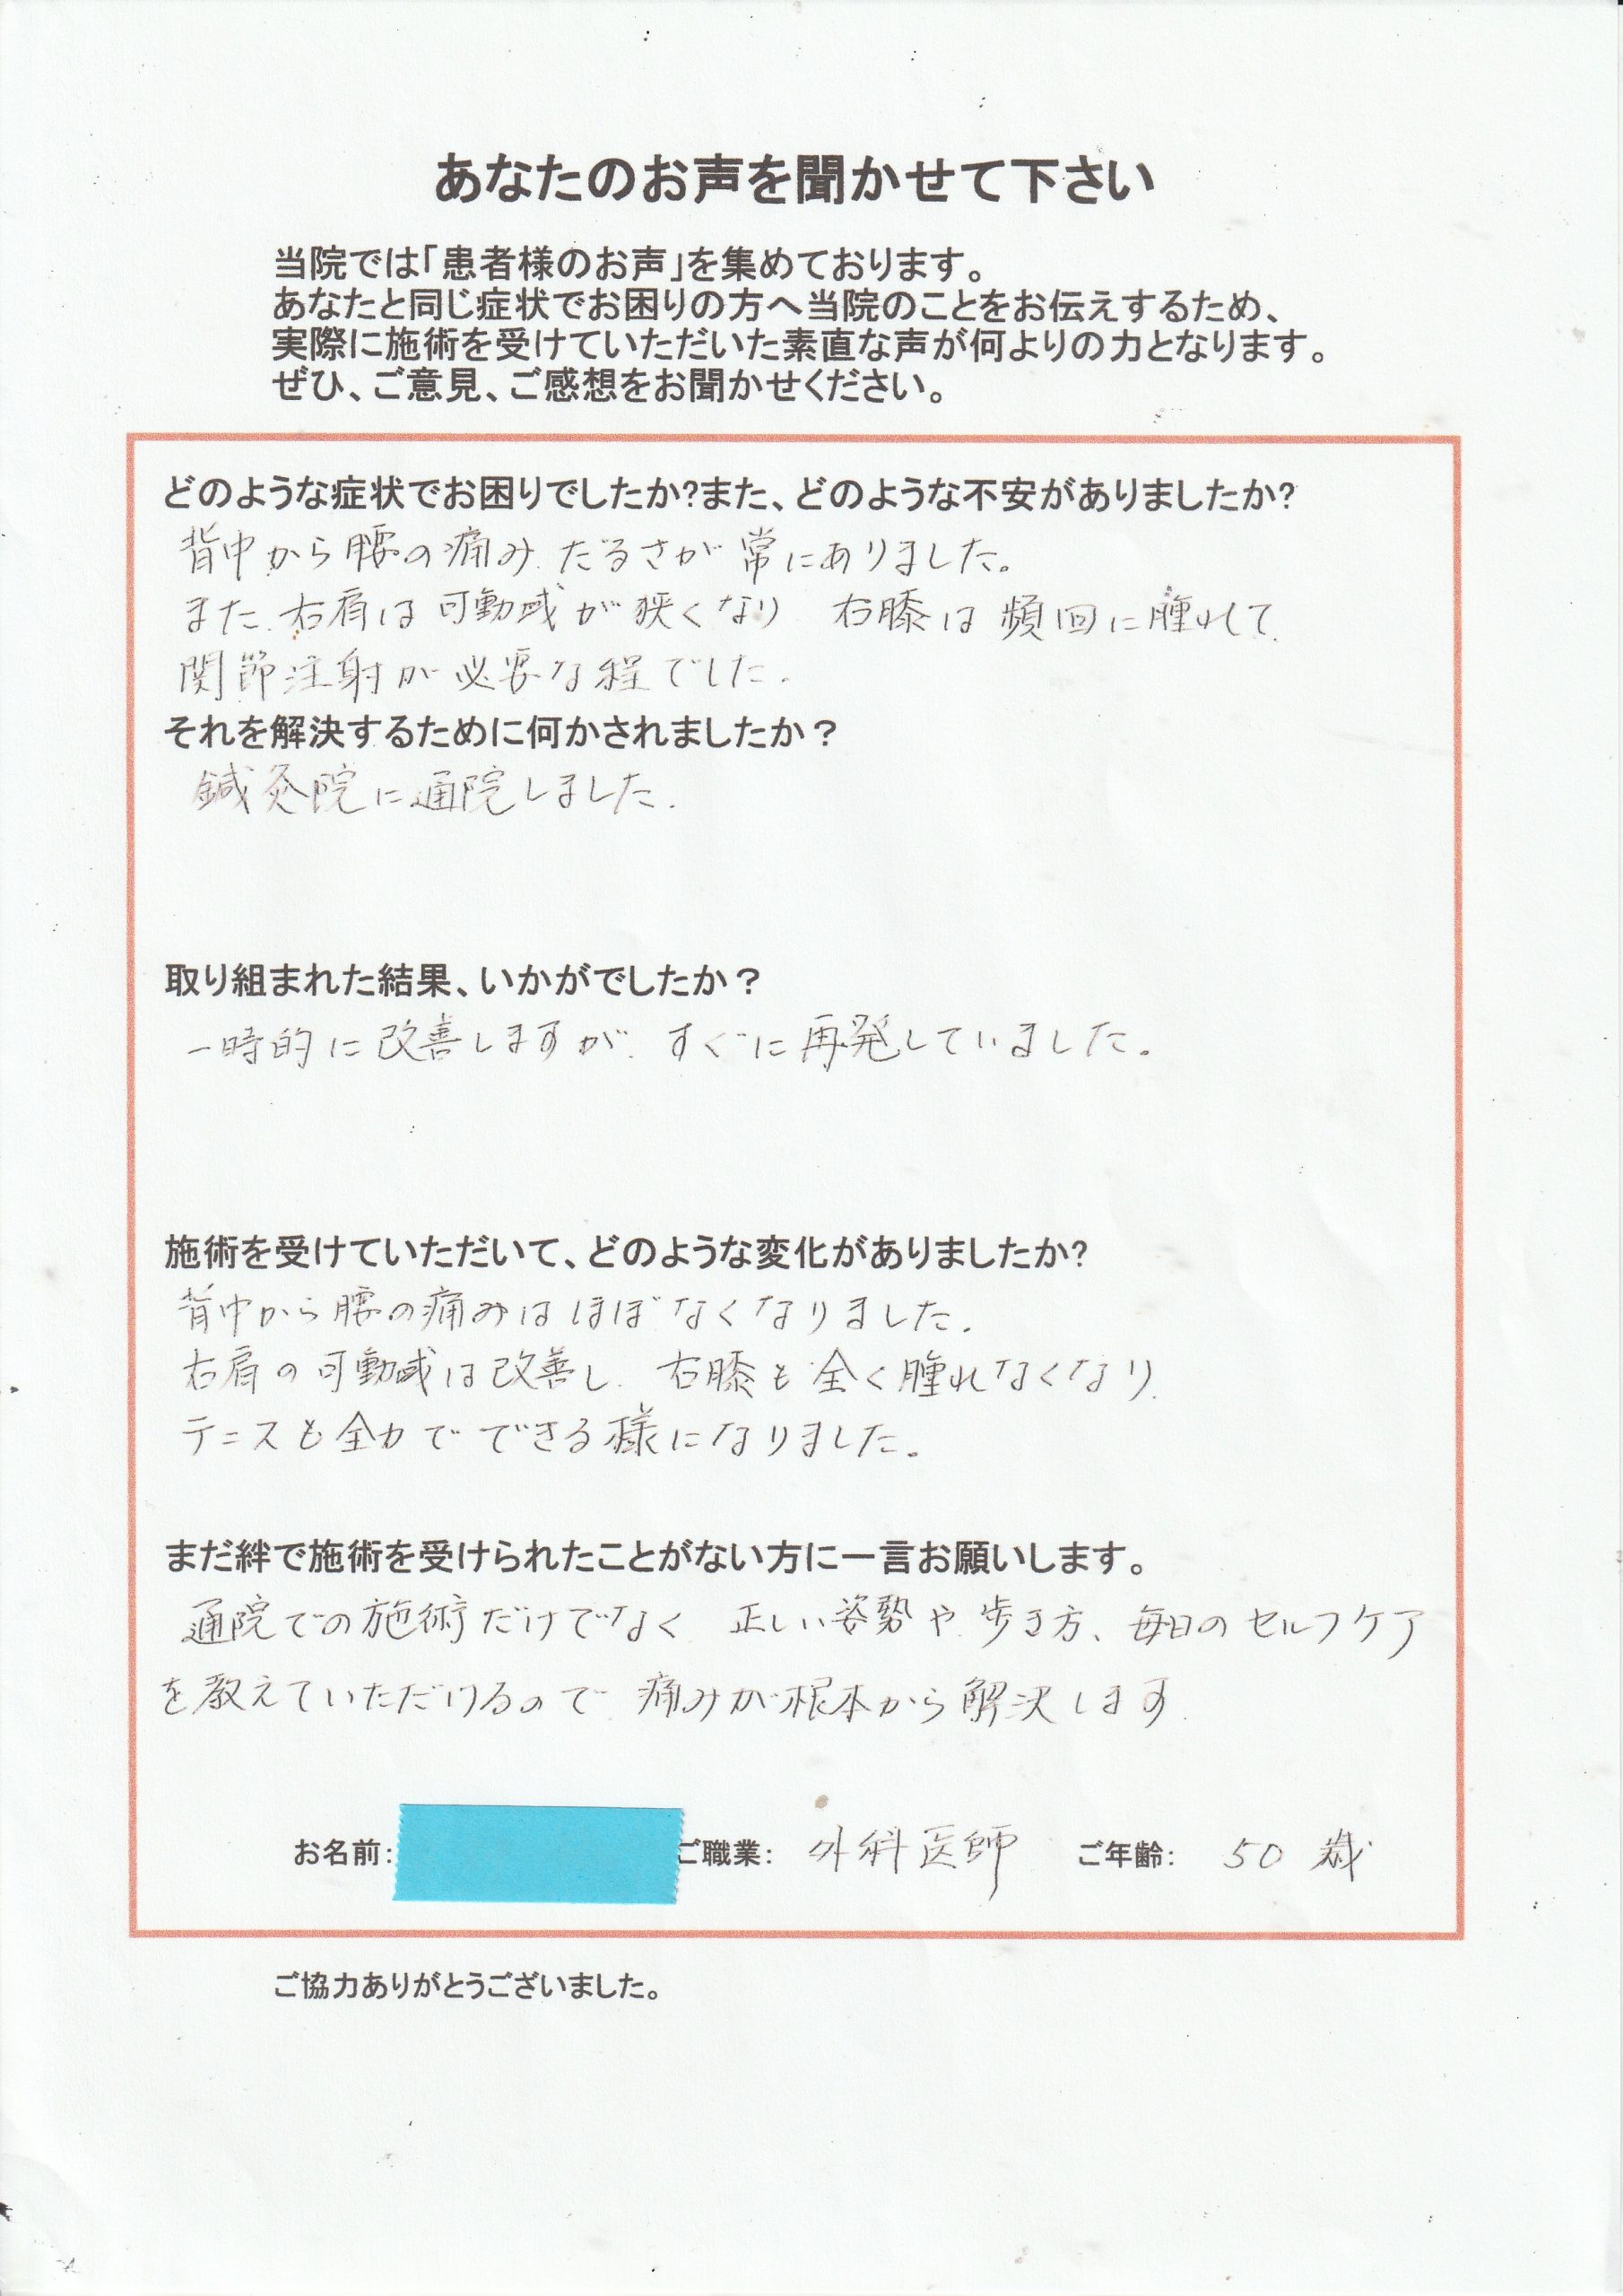 あなたのお声を聞かせて下さい
当院では「患者様のお声」を集めております。
あなたと同じ症状でお困りの方へ当院のことをお伝えするため、
実際に施術を受けていただいた素直な声が何よりの力となります。
ぜひ、ご意見、ご感想をお聞かせください。
どのような症状でお困りでしたか?また、どのような不安がありましたか?
背中から腰の痛み、だるさが常にありました。
また、右肩は可動域が狭くなり 右膝は頻回に腫れて、
関節注射が必要な程でした。
それを解決するために何かされましたか？
鍼灸院に通院しました。
取り組まれた結果、いかがでしたか？
一時的に改善しますが、すぐに再発していました。
施術を受けていただいて、どのような変化がありましたか?
背中から腰の痛みはほぼなくなりました。
右肩の可動域は改善し、右膝も全く腫れなくなり、
テニスも全力でできる様になりました。
まだ絆で施術を受けられたことがない方に一言お願いします。
通院での施術だけでなく 正しい姿勢や、歩き方、毎日のセルフケア
を教えていただけるので 痛みが根本から解決します。
お名前: ご職業: 外科医師 ご年齢: 50 歳
ご協力ありがとうございました。